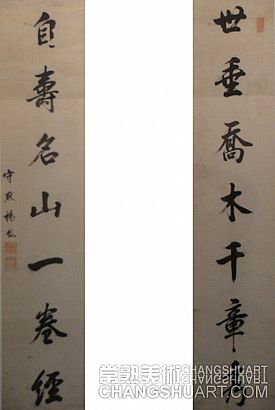 世垂喬木千章
自壽名山一卷經
守默楊
常熟美術 CHANGSHUART
CHANGSHUART.COM